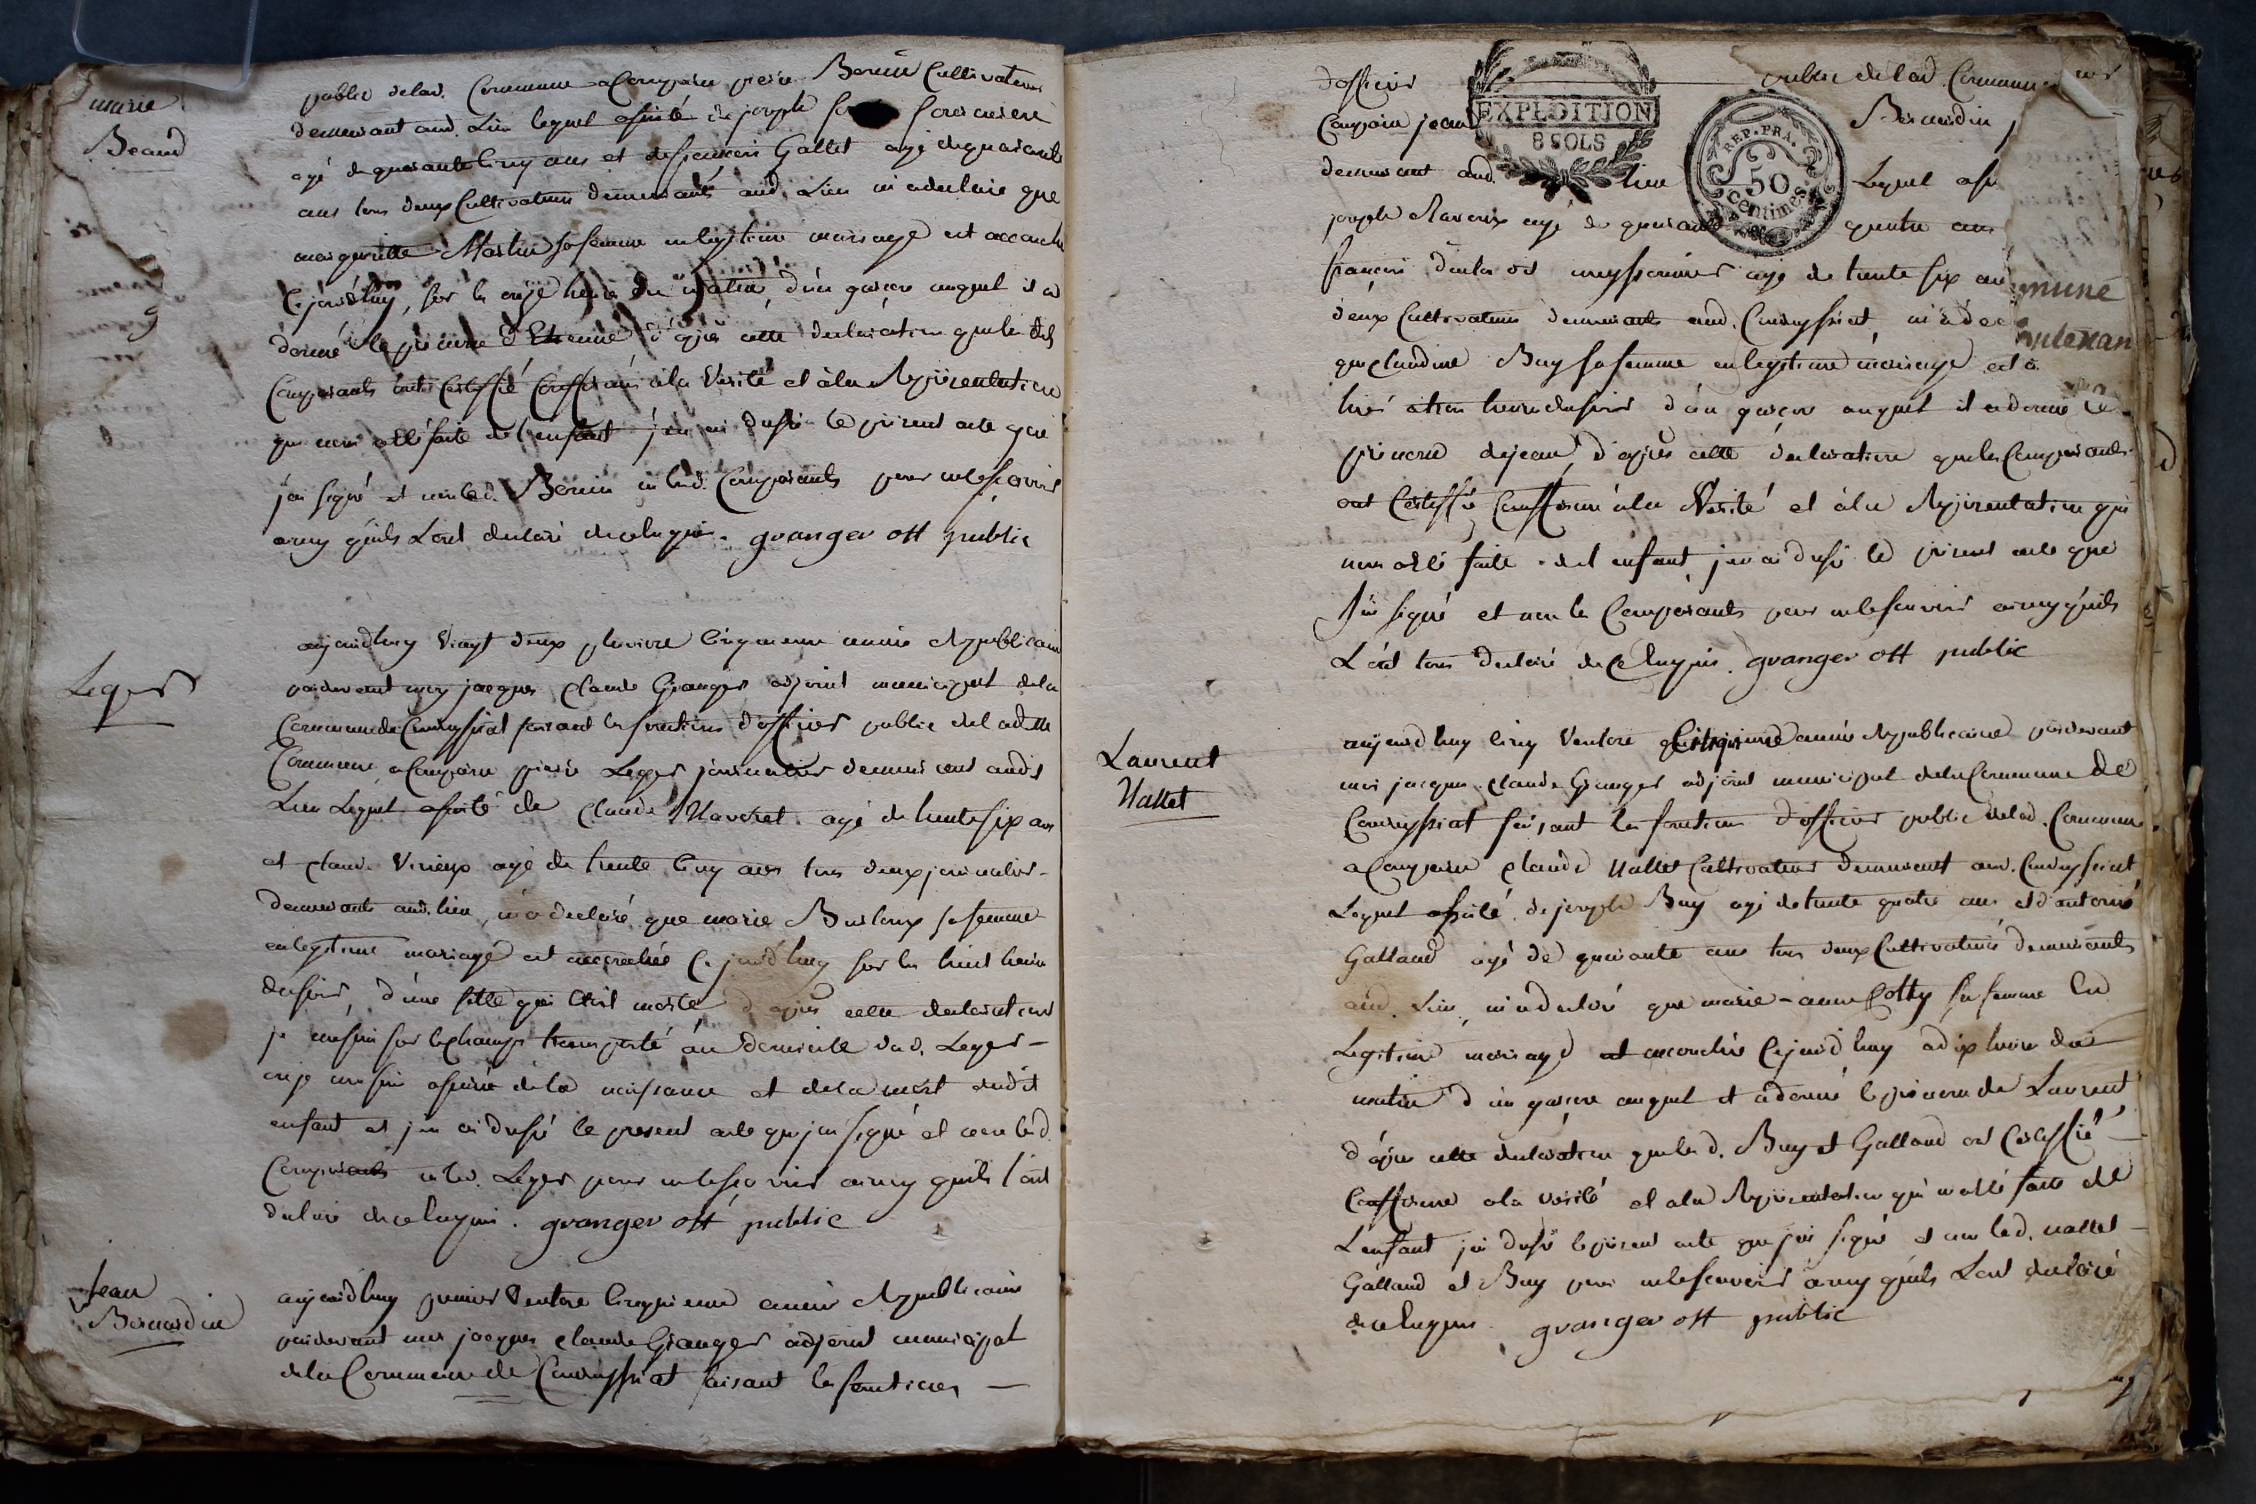 marie
Beaud
public delad. Commune a Comparu pierre Benuin Cultivateur
demeurant aud. Lieu lequel assisté de joseph
agé de quarante cinq ans et de francois Gallet agé de quarante
ans tous deux Cultivateurs demeurants aud. Lieu m'a declaré que
margueritte Martin sa femme en legitime mariage est accouché
Cejourd'huy, sur les onze heures du matin, d'un garçon auquel il a
donné le prénom d'Etienne d'apres cette declaration que les dits
Comparants ont Certiffié Conforme à la Verité et à la Representation
qui m'a eté faite de l'enfant j'en ai dressé le present acte que
j'ai signé et non led. Benuin ni lesd. Comparants pour ne le scavoir
ainsy quils L'ont declaré de ce enquis. granger off public
Leger
aujourdhuy Vingt deux pluviose Cinquieme année Republicaine
pardevant moy jacques Claude Granger adjoint municipal dela
Commune de Courmssiat faisant les fonctions d'officier public de ladette
Commune, a Comparu pierre Leger journalier demeurant audit
Lieu Lequel assisté de Claude Naveret agé de trente six ans
et Claude Virieux agé de trente Cinq ans tous deux journalier
demeurants aud. lieu, m'a declaré que marie Burloux sa femme
en legitime mariage est accouchée Cejourd'huy sur les huit heures
du soir, d'une fille qui Etoit morte d'apres cette declaration
je me suis sur le champs transporté au domicile dud. Leger
ou je me suis assuré de la naissance et de la mort dudit
enfant et j'en ai dressé le present acte que j'ai signé et non lesd.
Comparants ni led. Leger pour ne le scavoir ainsy quils l'ont
declaré de ce enquis. granger off public
Jean
Bernardin
aujourdhuy premier Ventose Cinquieme année Republicaine
pardevant moi jacques Claude Granger adjoint municipal
dela Commune de Courmssiat faisant les fonctions
d'officier public de lad. Commune
Comparu jean Bernardin
EXPEDITION
8 SOLS
REP. FRA.
50
centimes
demeurant aud. lieu Lequel ass
joseph Raverix agé de quarante quatre ans
francois meyssonnier agé de trente six an
deux Cultivateurs demeurants aud. Courmssiat, m'a dec
que Claudine Buy sa femme en legitime mariage est a
hier a trois heures du soir d'un garçon auquel il a donné le
prénom de jean, d'après cette declaration que les Comparants
ont Certiffié Conforme à la Verité et à la Representation qui
m'en a eté faite de l'enfant, j'en ai dressé le present acte que
j'ai signé et non les Comparants pour ne le scavoir ainsy quils
L'ont tous declaré de ce enquis. granger off public
mune
Laurent
Nallet
aujourdhuy cinq Ventose Cinquieme année Republicaine pardevant
moi jacques Claude Granger adjoint municipal dela Commune de
Courmssiat faisant les fonctions d'officier public de lad. Commune
a Comparu Claude Nallet Cultivateur demeurant aud. Courmssiat
Lequel assisté de joseph Buy agé de trente quatre ans et d'antoine
Galland agé de quarante ans tous deux Cultivateurs demeurants
aud. Lieu, m'a declaré que marie-anne Cotty sa femme En
Legitime mariage est accouchée Cejourd'huy a dix heures du
matin d'un garçon auquel il a donné le prénom de Laurent
d'après cette declaration que lesd. Buy et Galland ont Certiffié
Conforme a la verité et a la Representation qui m'a eté faite de
L'enfant j'ai dressé le present acte que j'ai signé et non lesd. Nallet
Galland et Buy pour ne le scavoir ainsy quils L'ont declaré
de ce enquis. granger off public